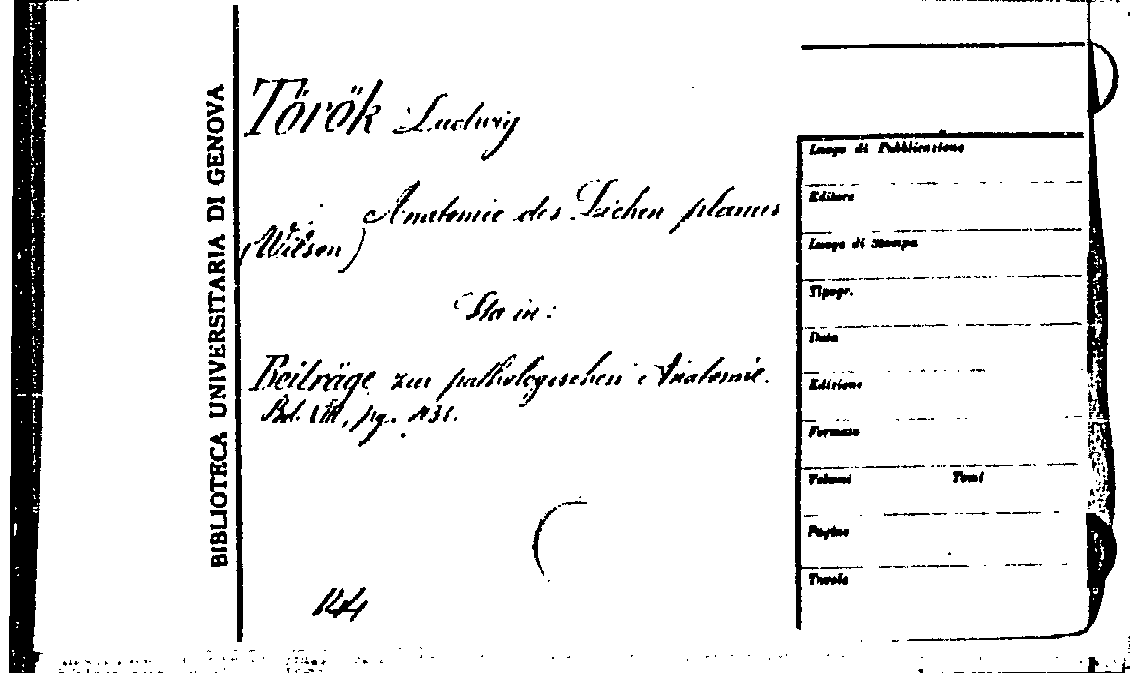 BIBLIOTECA UNIVERSITARIA DI GENOVA
Török Ludwig
Anatomie des Lichen planus
(Wilson)
Sta in:
Beiträge zur pathologischen Anatomie.
Bd. VIII, pg. 431.
Luogo di Pubblicazione
Editore
Luogo di Stampa
Tipogr.
Data
Edizione
Formato
Volumi Tomi
Pagine
Tavole